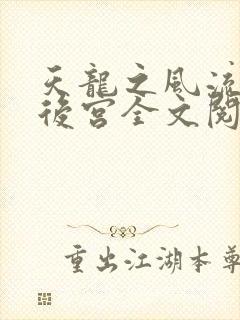 天龍之風流
後宮全文閱
重出江湖本尊